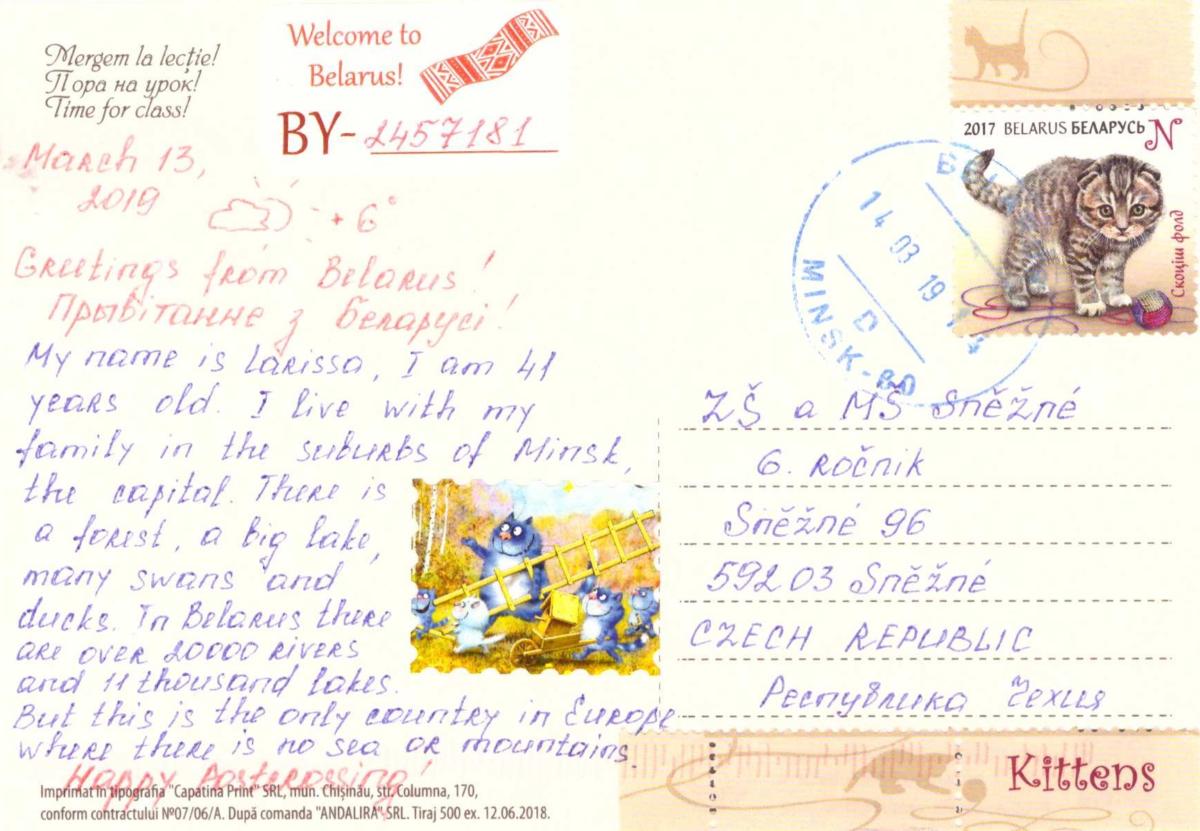 Mergem la lecție!
Пора на урок!
Time for class!
Welcome to
Belarus!
BY-2457181
March 13,
2019
+6°
Greetings from Belarus!
Прывітанне з Беларусі!
My name is Larissa, I am 41
years old. I live with my
family in the suburbs of Minsk,
the capital. There is
a forest, a big lake,
many swans and
ducks. In Belarus there
are over 20000 rivers
and 11 thousand lakes.
But this is the only country in Europe
where there is no sea or mountains.
Happy Postcrossing!
Imprimat în tipografia "Capatina Print" SRL, mun. Chișinău, str. Columna, 170,
conform contractului №07/06/A. După comanda "ANDALIRA" SRL. Tiraj 500 ex. 12.06.2018.
2017 BELARUS БЕЛАРУСЬ N
Скоціш фолд
14 03 19
D
MINSK-80
ZŠ a MŠ Sněžné
6. ročnik
Sněžné 96
592 03 Sněžné
CZECH REPUBLIC
Республика Чехия
Kittens